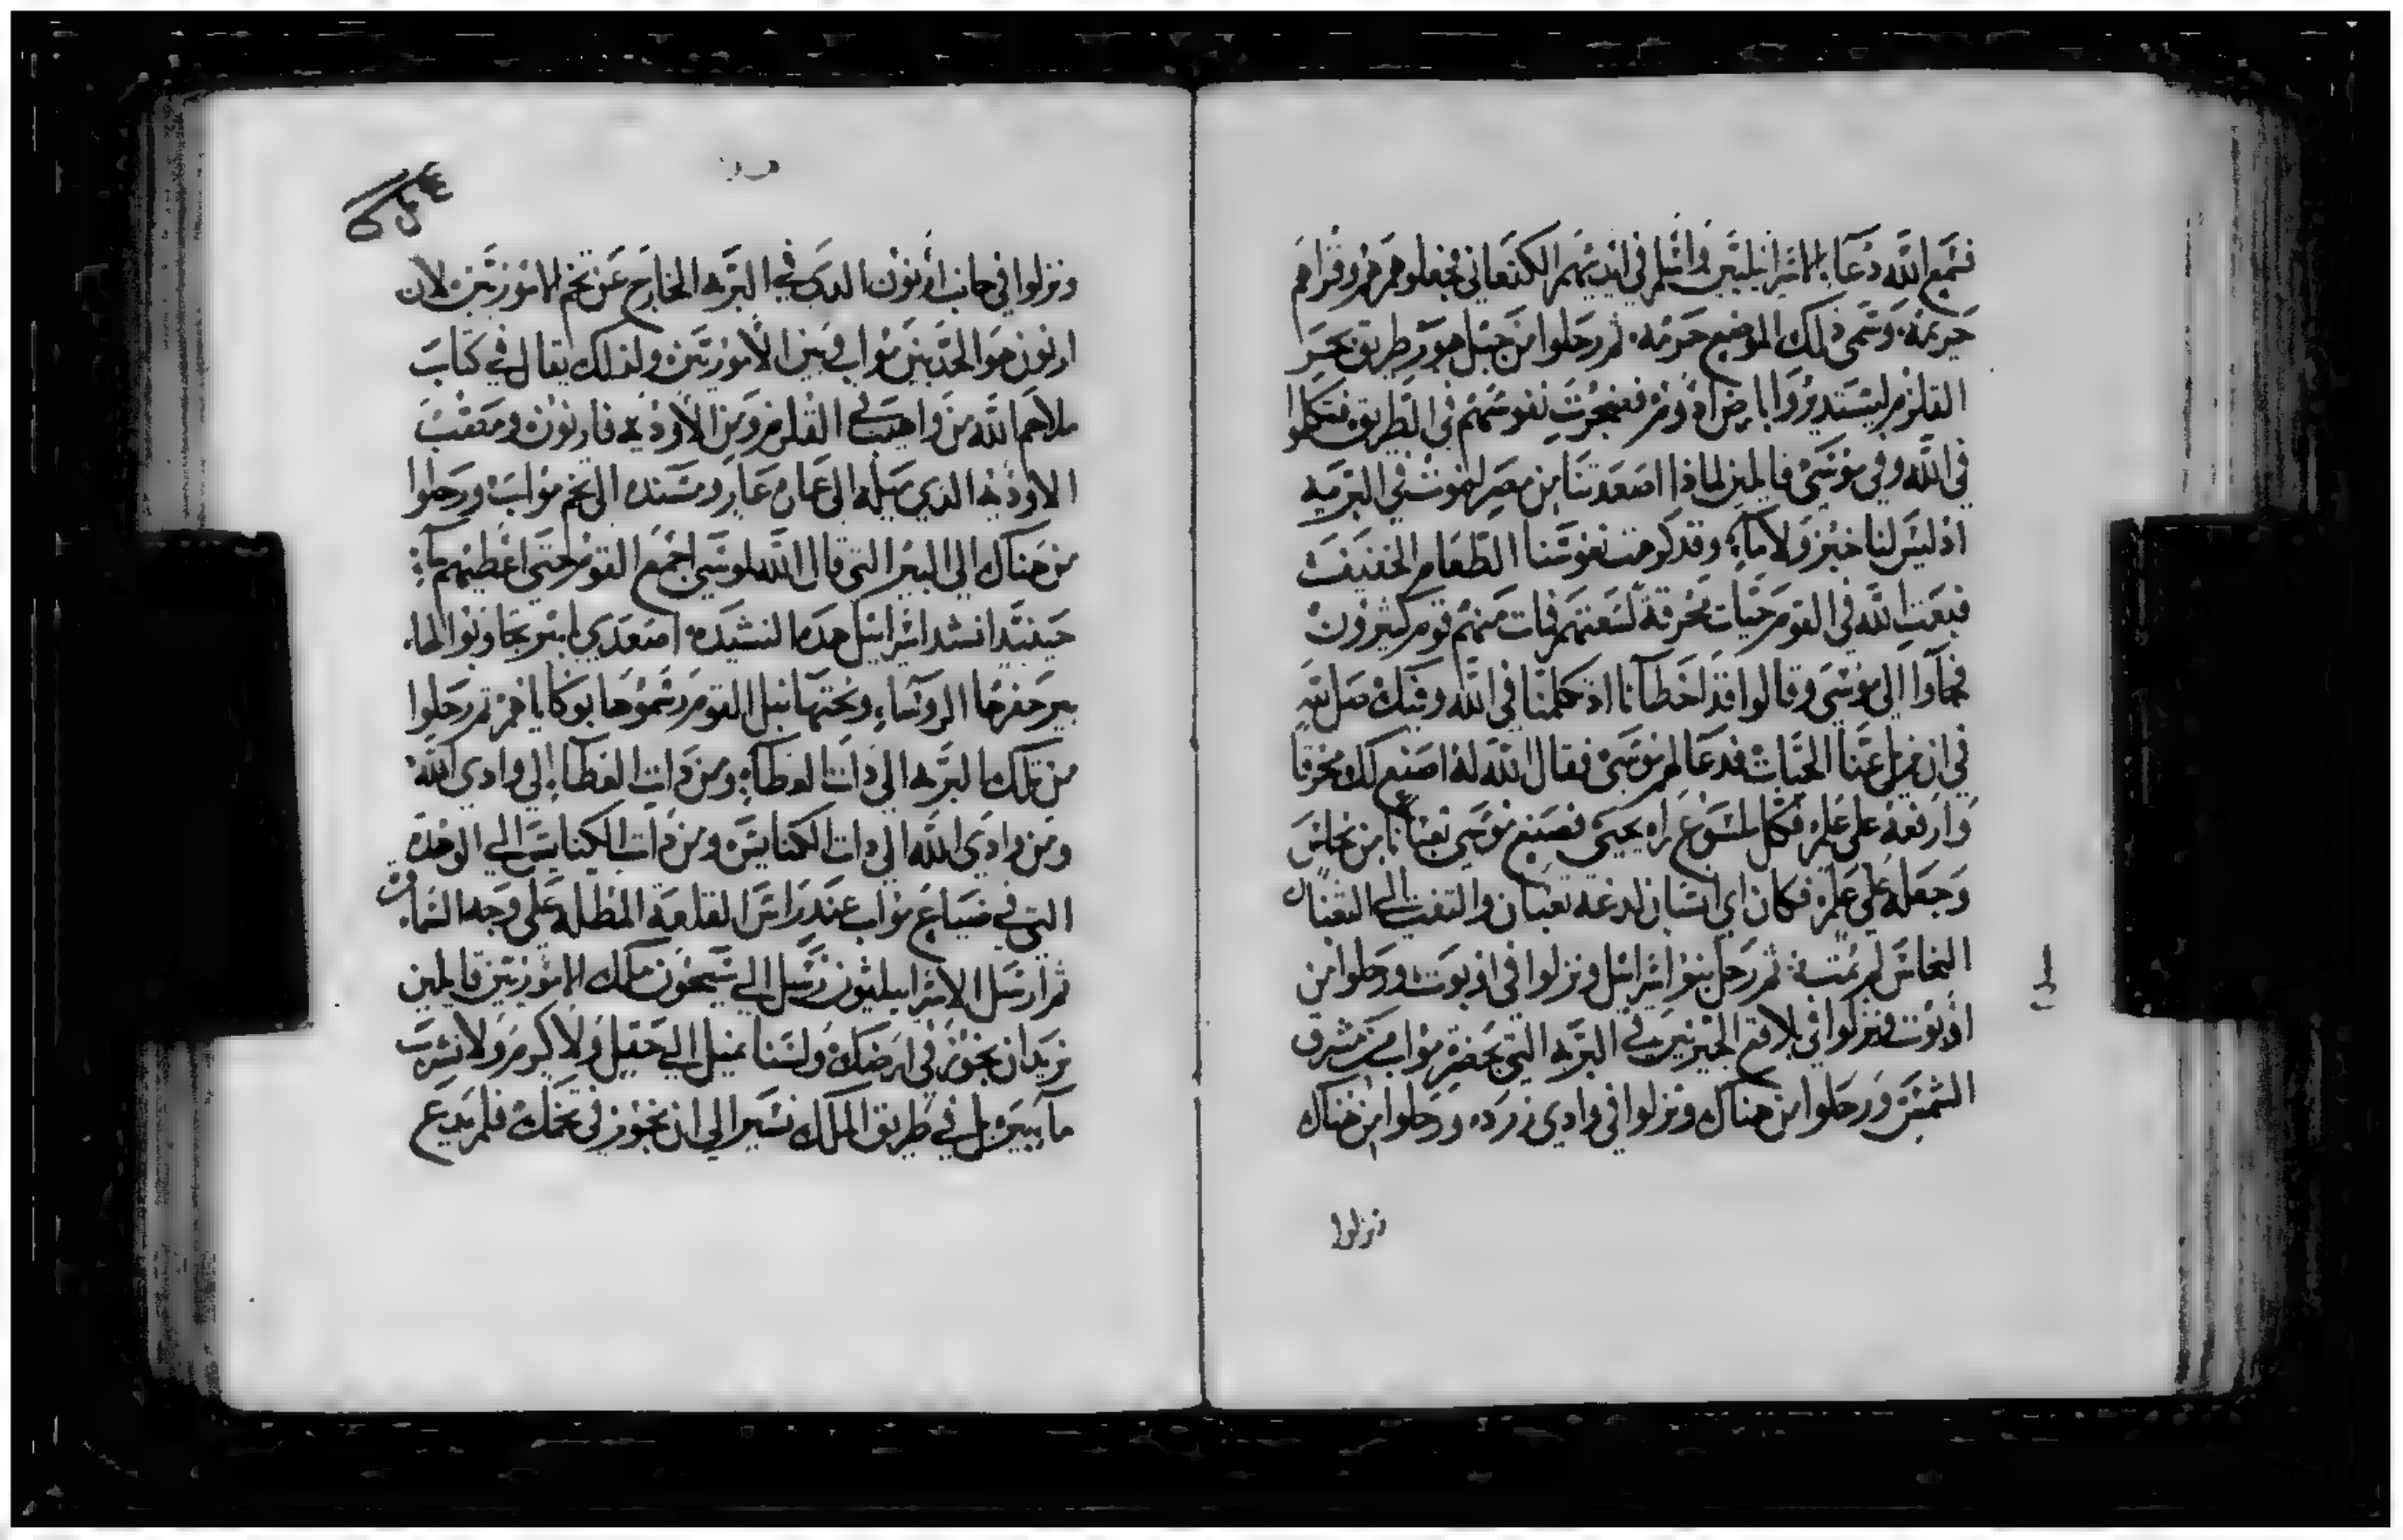 فسمع الله دعا الاسرائيليين واسلم في ايديهم الكنعاني فجعلوهم هم وقراهم
حريمة وسمى ذلك الموضع حرمه ثم رحلوا من جبل هور طريق بحر
القلزم ليستديروا بارض ادوم فضجرت نفوسهم في الطريق فتكلموا
في الله وفي موسى قايلين لماذا اصعدتنا من مصر لنموت في البريه
اذ ليس لنا خبز ولا ماء وقد كرهت نفوسنا الطعام الخفيف
فبعث الله في القوم حيات محرقة لسعتهم فمات منهم قوم كثيرون
فجاوا الى موسى وقالوا قد اخطانا اذ تكلمنا في الله وفيك صل لله
في ان يزيل عنا الحيات فدعا لهم موسى فقال الله له اصنع لك محرقا
وارفعه على علم فكل لسوع راه يحيى فصنع موسى ثعبانا من نحاس
وجعله على علم فكان اي انسان لدغه ثعبان والتفت الى الثعبان
النحاس لم يمت ثم رحل بنوا اسرائيل ونزلوا في اوبوت ورحلوا من
اوبوت فنزلوا في بلاقع الحيزين في البريه التي بحضرة مواب من مشرق
الشمس ورحلوا من هناك ونزلوا في وادي زرده ورحلوا من هناك
نزلوا
ونزلوا في جانب ارنون الذي في البريه الخارج عن تخم الامورنين لان
ارنون هو الحد بين مواب وبين الامورنين ولذلك يقال في كتاب
ملاحم الله من واهب في القلزم ومن الاوديه فارنون ومصب
الاوديه الذي ميله الى عمارة عار ومسنده الى تخم مواب ورحلوا
من هناك الى البير التي قال الله لموسى اجمع القوم حتى اعطيهم ماء
حينئذ انشد اسرائيل هذه النشيده اصعدي يا بير جاوبوا لها
بير حفرها الروساء ونحتها نبل القوم رسموها بوكايا هم ثم رحلوا
من تلك البريه الى ذات العطاء ومن ذات العطاء الى وادي الله
ومن وادي الله الى ذات الكنايس ومن ذات الكنايس الى الوهده
التي في ضياع مواب عند راس القلعة المطله على وجه السماوة
ثم ارسل الاسرائيليون رسل الى سيحون ملك الامورنين قايلين
نريد ان نجوز في ارضك ولسنا نميل الى حقل ولا كرم ولا نشرب
ماء بير بل في طريق الملك نسير الى ان نجوز في تخمك فلم يدع